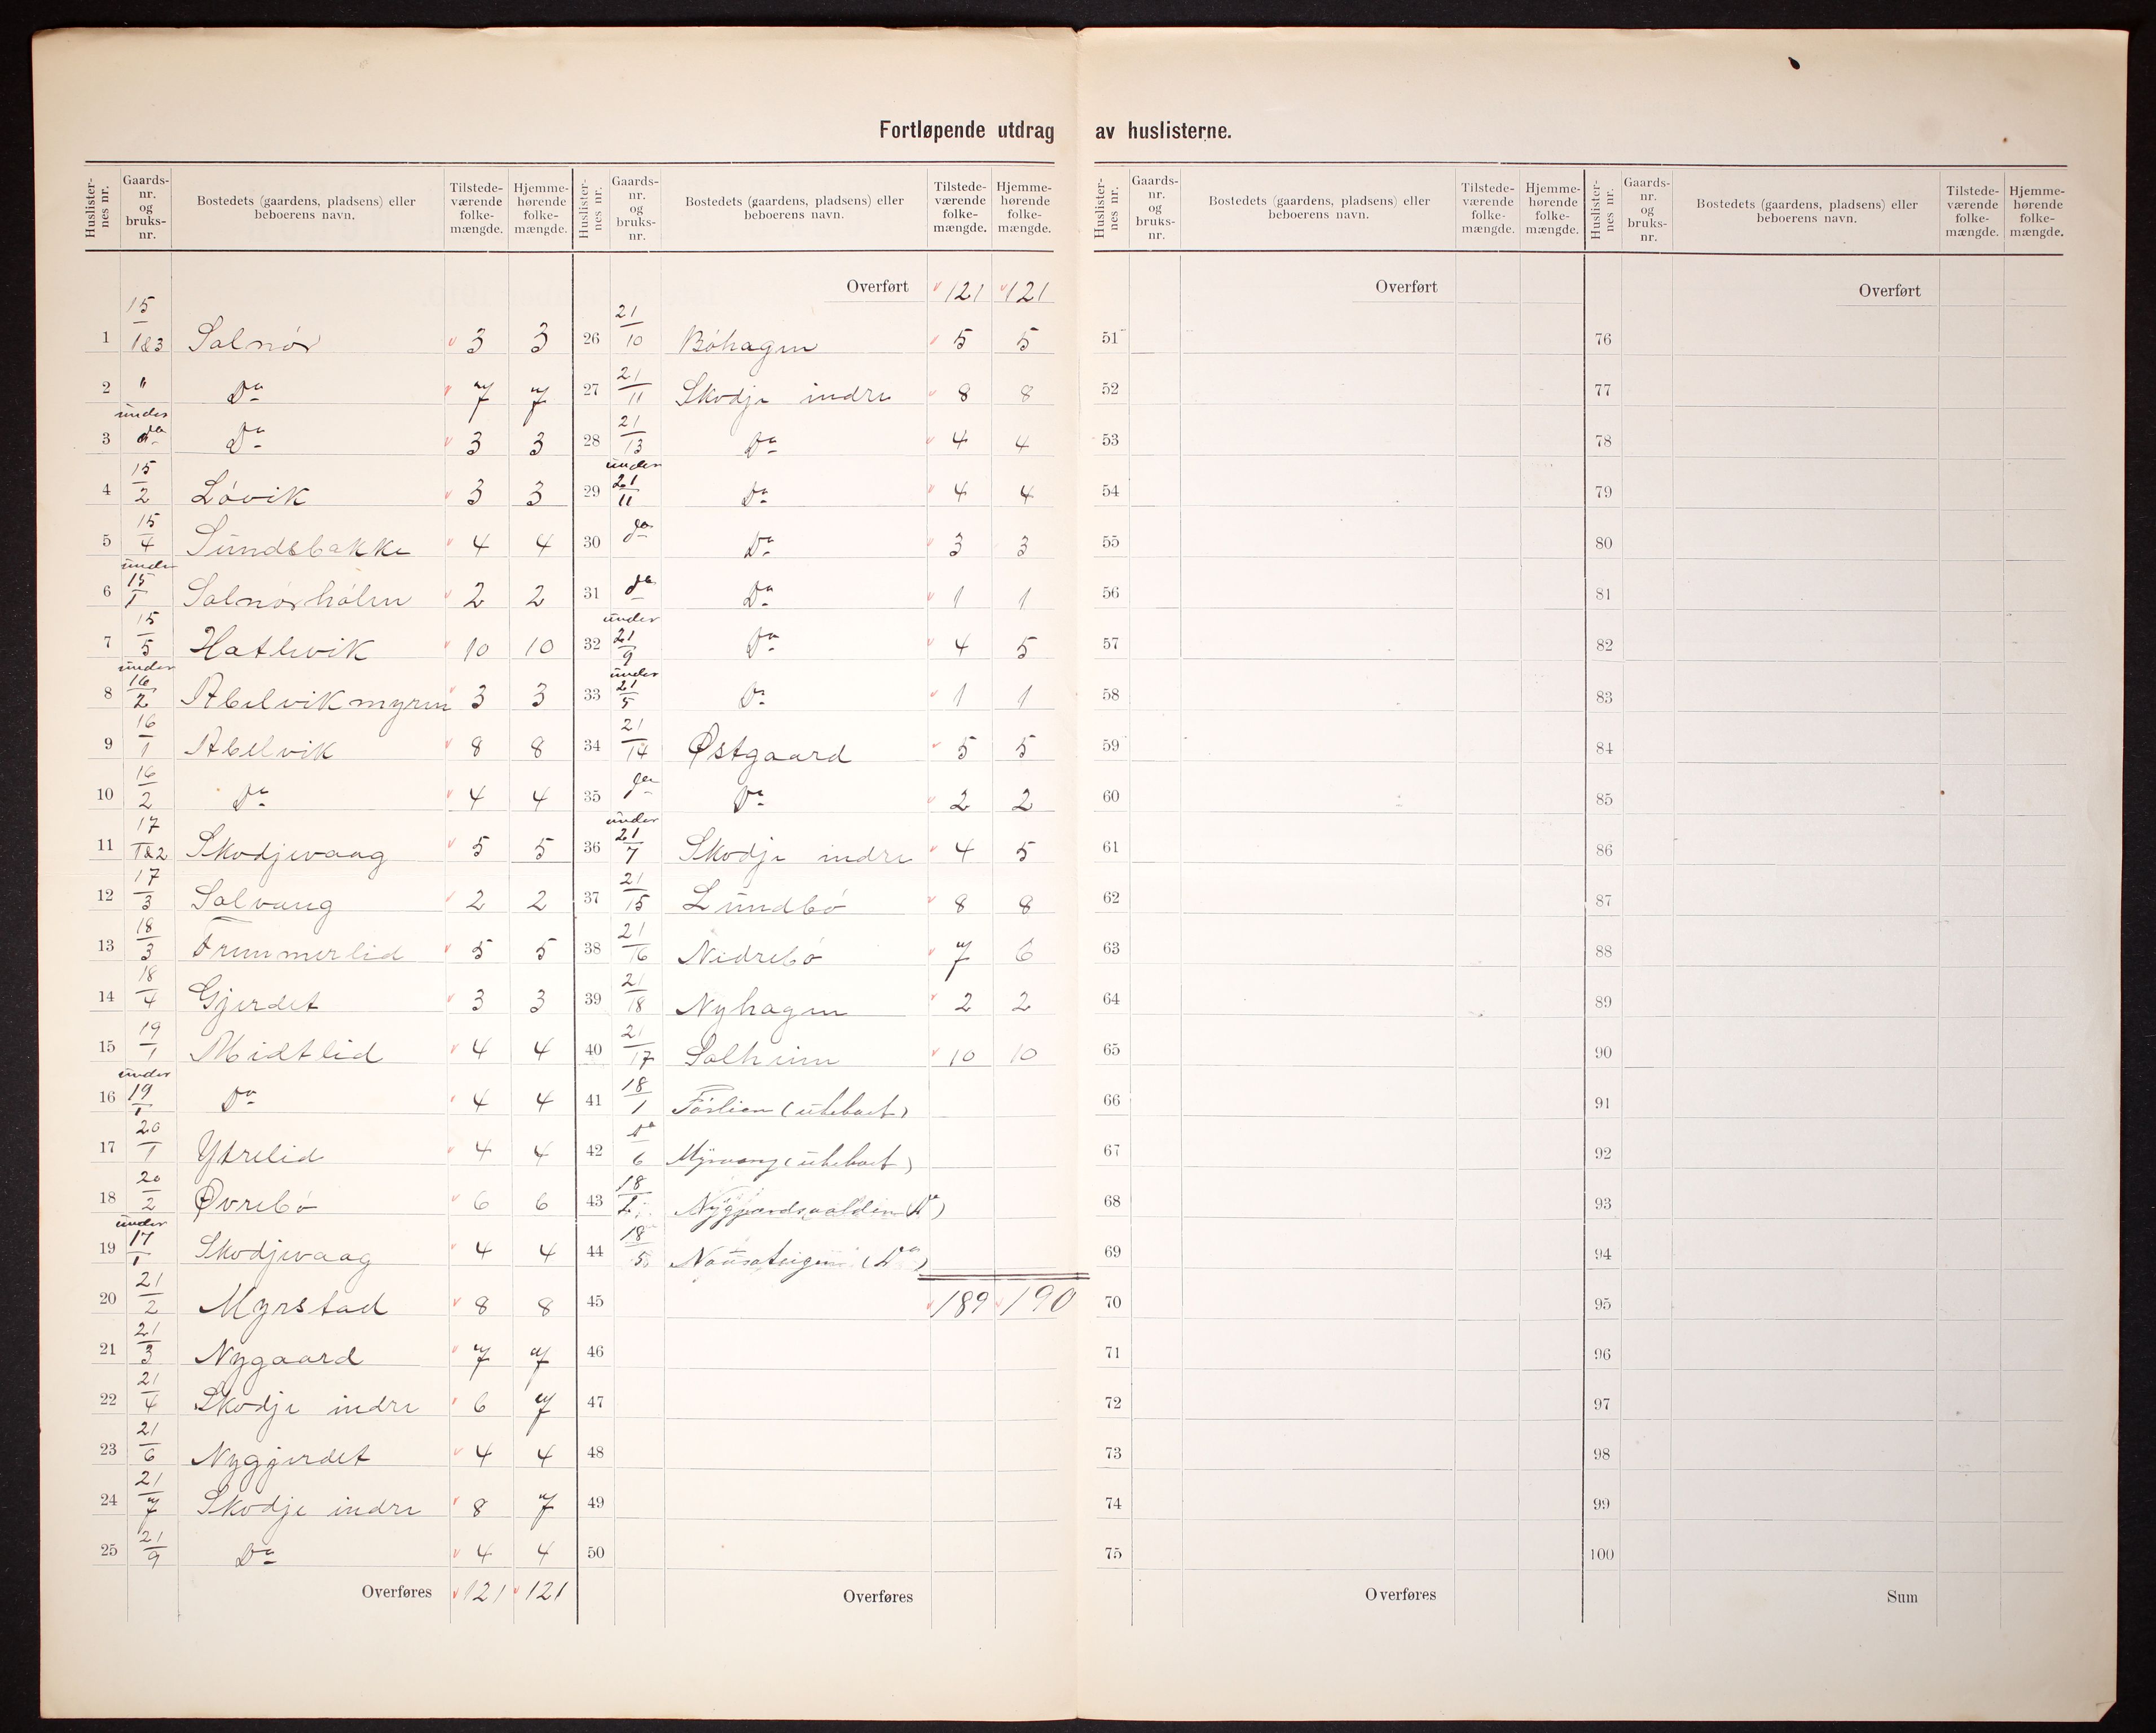 Fortløpende utdrag av huslisterne.
Huslister-nes nr. | Gaards-nr. og bruks-nr. | Bostedets (gaardens, pladsens) eller beboerens navn. | Tilstede-værende folke-mængde. | Hjemme-hørende folke-mængde.
1 15/1&3 Solnør 3 3
2 " Do 7 7
3 under do Do 3 3
4 15/2 Løvik 3 3
5 15/4 Sundsbakke 4 4
6 under 15/1 Solnørholm 2 2
7 15/5 Hatlevik 10 10
8 under 16/2 Abelvikmyren 3 3
9 16/1 Abelvik 8 8
10 16/2 Do 4 4
11 17/1&2 Skodjevaag 5 5
12 17/3 Solvang 2 2
13 18/3 Frummerlid 5 5
14 18/4 Gjerdet 3 3
15 19/1 Midtlid 4 4
16 under 19/1 Do 4 4
17 20/1 Ytrelid 4 4
18 20/2 Øvrebø 6 6
19 under 17/1 Skodjevaag 4 4
20 21/2 Myrstad 8 8
21 21/3 Nygaard 7 7
22 21/4 Skodje indre 6 7
23 21/6 Nyggjerdet 4 4
24 21/7 Skodje indre 8 7
25 21/9 Do 4 4
Overføres 121 121
Huslister-nes nr. | Gaards-nr. og bruks-nr. | Bostedets (gaardens, pladsens) eller beboerens navn. | Tilstede-værende folke-mængde. | Hjemme-hørende folke-mængde.
Overført 121 121
26 21/10 Bøhagen 5 5
27 21/11 Skodje indre 8 8
28 21/13 Do 4 4
29 under 21/11 Do 4 4
30 do Do 3 3
31 do Do 1 1
32 under 21/9 Do 4 5
33 under 21/5 Do 1 1
34 21/14 Østgaard 5 5
35 do Do 2 2
36 under 21/7 Skodje indre 4 5
37 21/15 Lundbø 8 8
38 21/16 Nedrebø 7 6
39 21/18 Nyhagen 2 2
40 21/17 Solheim 10 10
41 18/1 Førlien (ubeboet)
42 Do/6 Myrvang (ubeboet)
43 18/2 (Do)
44 18/5 (Do)
45 189 190
46
47
48
49
50
Overføres
Huslister-nes nr. | Gaards-nr. og bruks-nr. | Bostedets (gaardens, pladsens) eller beboerens navn. | Tilstede-værende folke-mængde. | Hjemme-hørende folke-mængde.
Overført
51
52
53
54
55
56
57
58
59
60
61
62
63
64
65
66
67
68
69
70
71
72
73
74
75
Overføres
Huslister-nes nr. | Gaards-nr. og bruks-nr. | Bostedets (gaardens, pladsens) eller beboerens navn. | Tilstede-værende folke-mængde. | Hjemme-hørende folke-mængde.
Overført
76
77
78
79
80
81
82
83
84
85
86
87
88
89
90
91
92
93
94
95
96
97
98
99
100
Sum